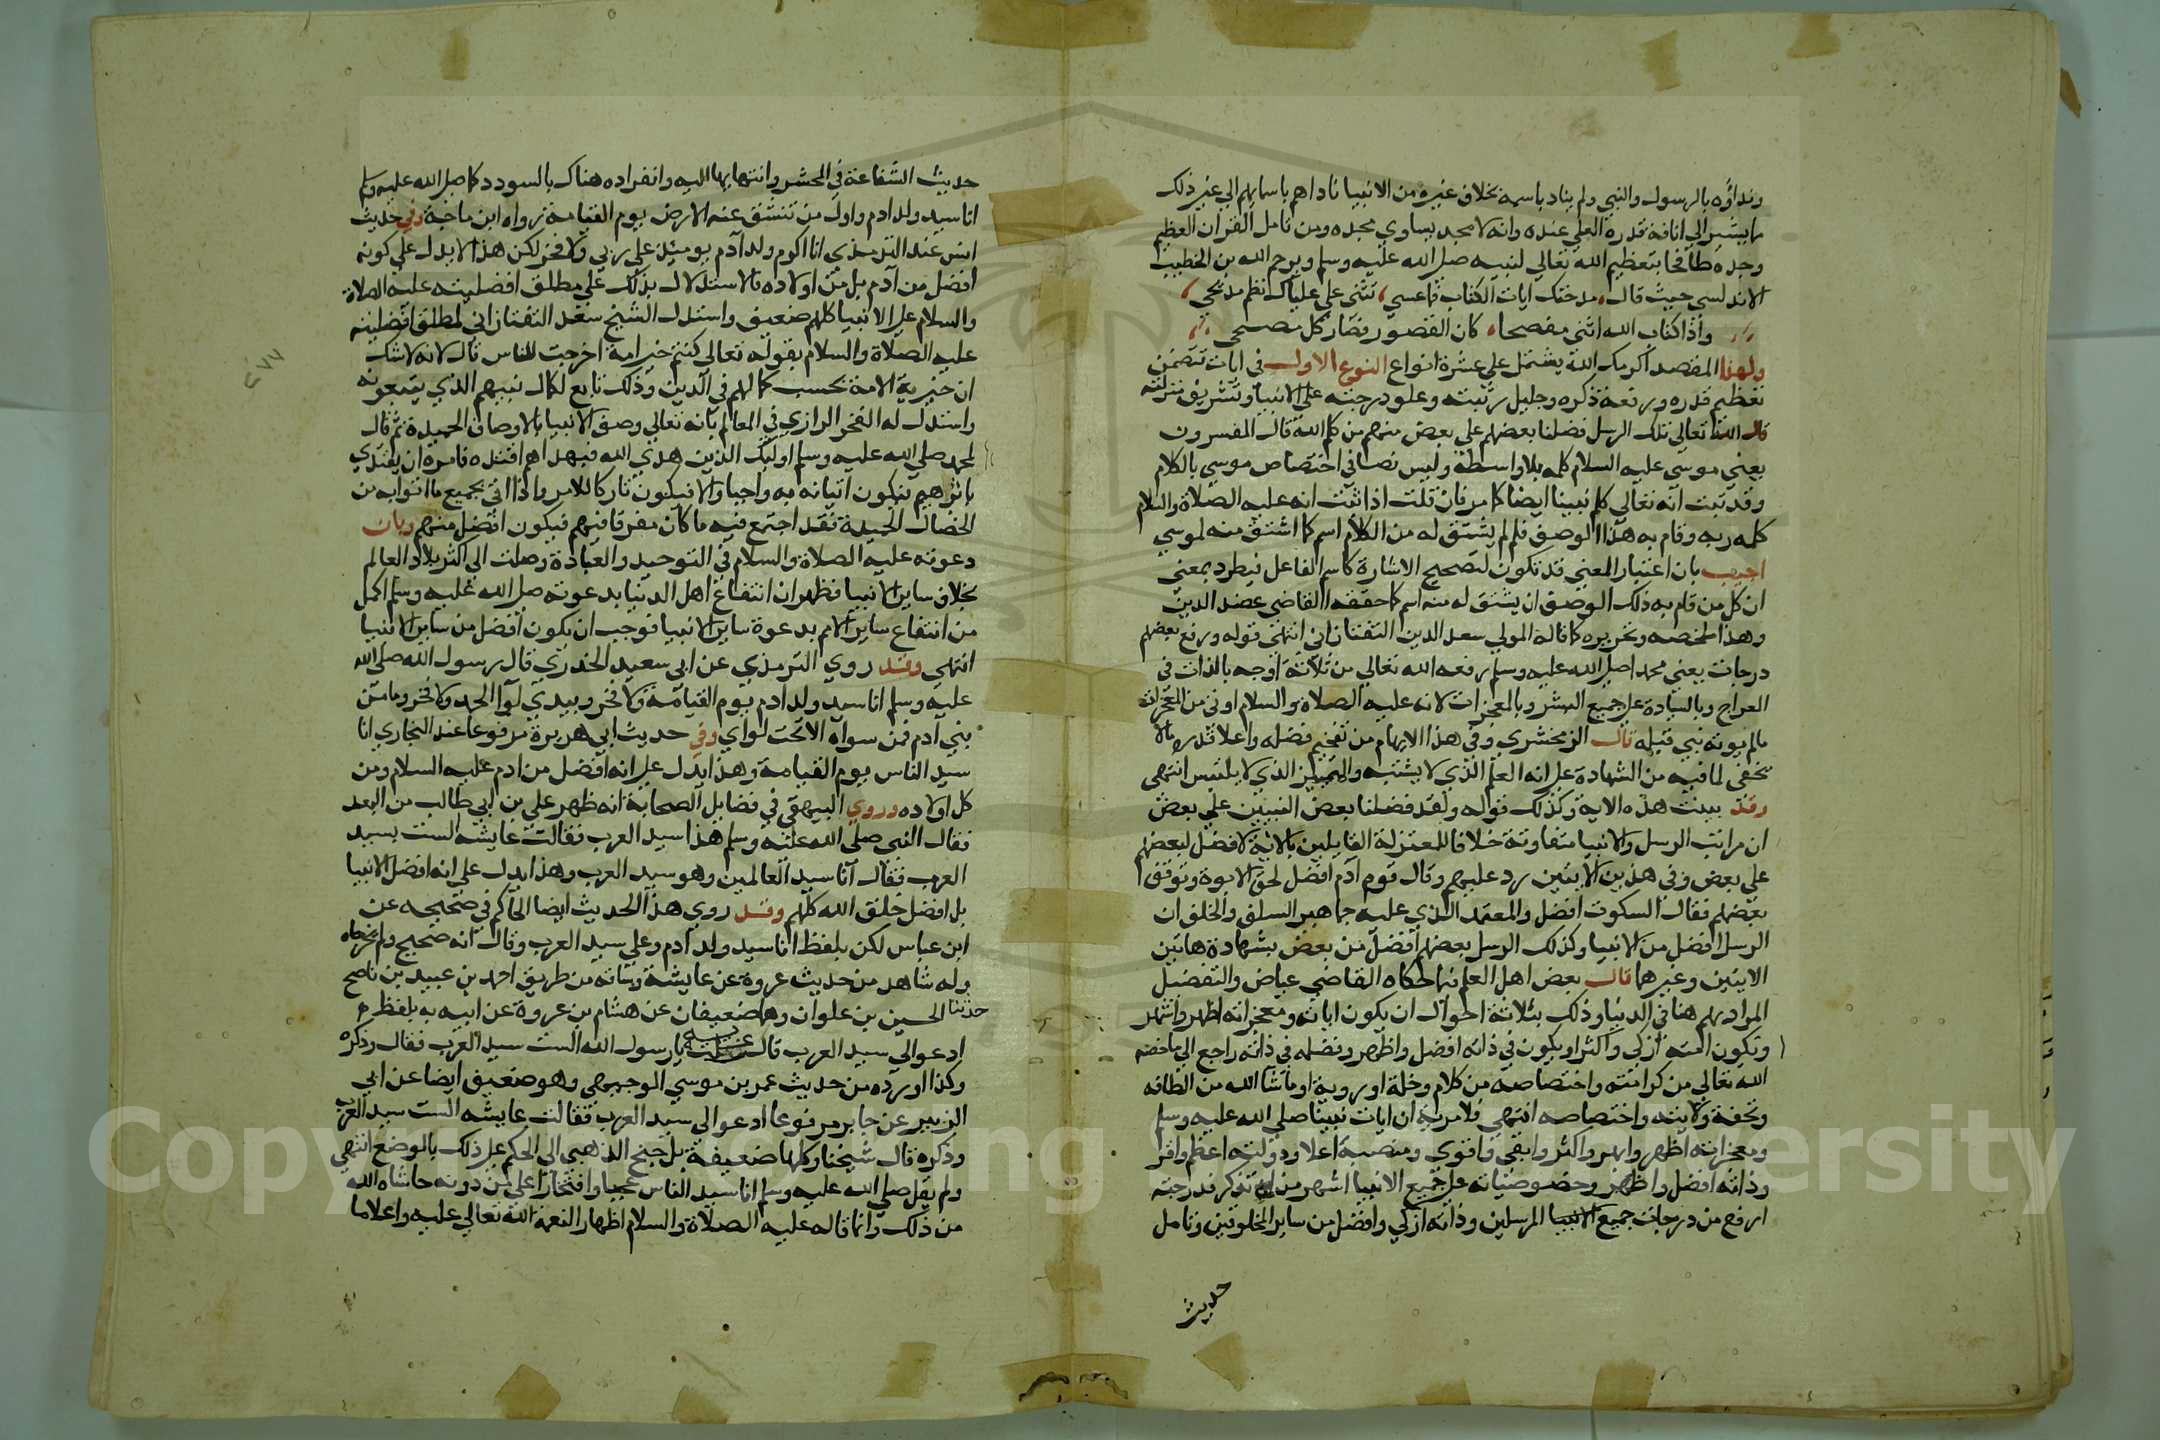 ونداؤه بالرسول والنبي ولم يناد باسمه بخلاف غيره من الانبيا ناداهم باسمايهم الي غير ذلك
ما يشير الي انافة قدره العلي عنده وانه لا مجد يساوي مجده ومن تامل القران العظيم
وجده طافحا بتعظيم الله تعالي لنبيه صلي الله عليه وسلم ويرحم الله بن الخطيب
الاندلسي حيث قال مدحتك ايات الكتاب فما عسي يثني علي علياك نظم مديحي
واذا كتاب الله اثني مفصحا كان القصور قصار كل فصيح
ولهذا المقصد اكرمك الله يشتمل علي عشرة انواع النوع الاول في ايات تتضمن
تعظيم قدره ورفعة ذكره وجليل رتبته وعلو درجته علي الانبيا وتشريف منزلته
قال الله تعالي تلك الرسل فضلنا بعضهم علي بعض منهم من كلم الله قال المفسرون
يعني موسي عليه السلام كلمه بلا واسطة وليس نصا في اختصاص موسي بالكلام
وقد ثبت انه تعالي كلم نبينا ايضا كما مر فان قلت اذا ثبت انه عليه الصلاة والسلام
كلمه ربه وقام به هذا الوصف فلم لم يشتق له من الكلام اسم كما اشتق منه لموسي
اجيب بان اعتبار المعني قد تكون لتصحيح الاشارة كاسم الفاعل فيطرد بمعني
ان كل من قام به ذلك الوصف ان يشتق له منه اسم كما حققه القاضي عضد الدين
وهذا لخصه وتحريره كما قاله المولي سعد الدين التفتازاني انتهي قوله ورفع بعضهم
درجات يعني محمدا صلي الله عليه وسلم رفعه الله تعالي من ثلاثة اوجه بالذات في
المعراج وبالسيادة علي جميع البشر وبالمعجزات لانه عليه الصلاة والسلام اوتي من المعجزات
مالم يوته نبي قبله قال الزمخشري وفي هذا الابهام من تفخيم فضله واعلا قدره مالا
يخفي لما فيه من الشهادة علي انه العلم الذي لا يشتبه والمتميز الذي لا يلتبس انتهي
وقد بينت هذه الاية وكذلك قوله ولقد فضلنا بعض النبيين علي بعض
ان مراتب الرسل والانبيا متفاوتة خلافا للمعتزلة القايلين بالانه لا فضل لبعضهم
علي بعض وفي هذين الايتين رد عليهم وقال قوم ادم افضل لحق الابوة وتوقف
بعضهم فقال السكوت افضل والمعتمد الذي عليه جماهير السلف والخلف ان
الرسل افضل من الانبيا وكذلك الرسل بعضهم افضل من بعض بشهادة هاتين
الايتين وغيرهما قال بعض اهل العلم فيما حكاه القاضي عياض والتفضيل
المراد بهم هنا في الدنيا وذلك بثلاثة احوال ان يكون اياته ومعجزاته اظهر واشهر
وتكون امته ازكي واكثر او يكون في ذاته افضل واظهر وفضله في ذاته راجع الي ما خصه
الله تعالي من كرامته واختصاصه من كلام وخلة او روية او ماشا الله من الطافه
وتحفة ولايته واختصاصه انتهي فلا مرية ان ايات نبينا صلي الله عليه وسلم
ومعجزاته اظهر وابهر واكثر وابقي واقوي ومنصبه اعلا ودولته اعظم واوفر
وذاته افضل واظهر وخصوصياته علي جميع الانبيا اشهر من ان تذكر فدرجته
ارفع من درجات جميع الانبيا المرسلين وذاته ازكي وافضل من ساير المخلوقين وتامل
حديث
حديث الشفاعة في المحشر وانتهايها اليه وانفراده هناك بالسودد كما صلي الله عليه وسلم
انا سيد ولد ادم واول من تنشق عنه الارض يوم القيامة رواه ابن ماجة وفي حديث
انس عند الترمذي انا اكرم ولد آدم يوميذ علي ربي ولا فخر لكن هذا لا يدل علي كونه
افضل من آدم بل من اولاده فالاستدلال بذلك علي مطلق افضليته عليه الصلاة
والسلام علي الانبيا كلهم ضعيف واستدل الشيخ سعد التفتازاني لمطلق افضليته
عليه الصلاة والسلام بقوله تعالي كنتم خير امة اخرجت للناس قال لانه لا شك
ان خيرية الامة بحسب كمالهم في الدين وذلك تابع لكمال نبيهم الذي يتبعونه
واستدل له الفخر الرازي في المعالم بانه تعالي وصف الانبيا بالاوصاف الحميدة ثم قال
لمحمد صلي الله عليه وسلم اوليك الذين هدي الله فبهداهم اقتده فامره ان يقتدي
باثرهم فيكون اتيانه به واجبا والا فيكون تاركا للامر واذا اتي بجميع ما اتوا به من
الخصال الحميدة فقد اجتمع فيه ما كان مفرقا فيهم فيكون افضل منهم وبان
دعوته عليه الصلاة والسلام في التوحيد والعبادة وصلت الي اكثر بلاد العالم
بخلاف ساير الانبيا فظهر ان انتفاع اهل الدنيا بدعوته صلي الله عليه وسلم اكمل
من انتفاع ساير الامم بدعوة ساير الانبيا فوجب ان يكون افضل من ساير الانبيا
انتهي وقد روي الترمذي عن ابي سعيد الخدري قال رسول الله صلي الله
عليه وسلم انا سيد ولد ادم يوم القيامة ولا فخر وبيدي لوا الحمد ولا فخر وما من
بني آدم فمن سواه الا تحت لواي وفي حديث ابي هريرة مرفوعا عند البخاري انا
سيد الناس يوم القيامة وهذا يدل علي انه افضل من ادم عليه السلام ومن
كل اولاده وروي البيهقي في فضايل الصحابة انه ظهر علي بن ابي طالب من البعد
فقال النبي صلي الله عليه وسلم هذا سيد العرب فقالت عايشه الست بسيد
العرب فقال انا سيد العالمين وهو سيد العرب وهذا يدل علي انه افضل الانبيا
بل افضل خلق الله كلهم وقد روي هذا الحديث ايضا الحاكم في صحيحه عن
ابن عباس لكن بلفظ انا سيد ولد آدم وعلي سيد العرب وقال انه صحيح ولم يخرجاه
وله شاهد من حديث عروة عن عايشة وساقه من طريق احمد بن عبيد بن ناصح
حدثنا الحسين بن علوان وهما ضعيفان عن هشام بن عروة عن ابيه به بلفظ
ادعو الي سيد العرب قالت عايشة يا رسول الله الست سيد العرب فقال وذكره
وكذا اورده من حديث عمر بن موسي الوجيهي وهو ضعيف ايضا عن ابي
الزبير عن جابر مرفوعا ادعو الي سيد العرب فقالت عايشه الست سيد العرب
وذكره قال شيخنا وكلها ضعيفة بل جنح الذهبي الي الحكم علي ذلك بالوضع انتهي
ولم يقل صلي الله عليه وسلم انا سيد الناس عجبا وافتخارا علي من دونه حاشاه الله
من ذلك وانما قاله عليه الصلاة والسلام اظهار النعمة الله تعالي عليه واعلاما
٢٧٧
Copyright © King Saud University